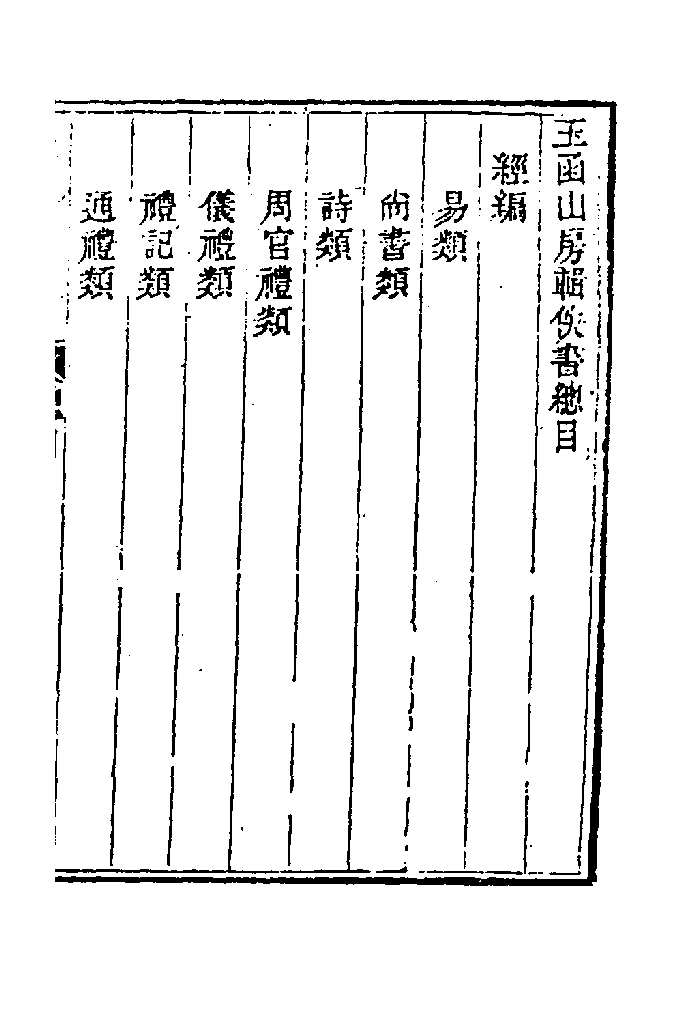 玉函山房輯佚書總目
經編
易類
尚書類
詩類
周官禮類
儀禮類
禮記類
通禮類